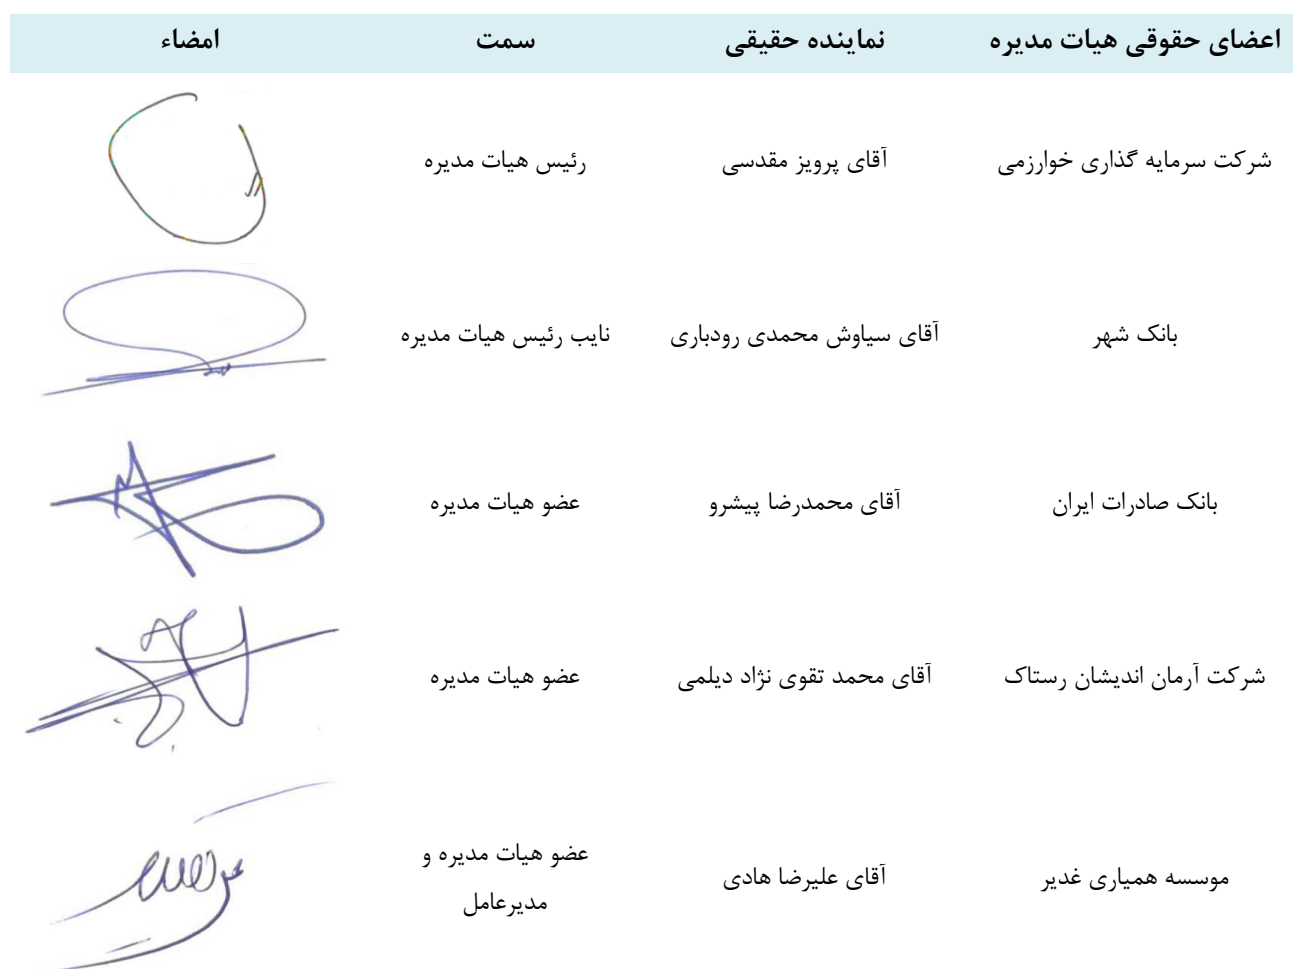 اعضای حقوقی هیات مدیره نماینده حقیقی سمت امضاء
شرکت سرمایه گذاری خوارزمی آقای پرویز مقدسی رئیس هیات مدیره
بانک شهر آقای سیاوش محمدی رودباری نایب رئیس هیات مدیره
بانک صادرات ایران آقای محمدرضا پیشرو عضو هیات مدیره
شرکت آرمان اندیشان رستاک آقای محمد تقوی نژاد دیلمی عضو هیات مدیره
موسسه همیاری غدیر آقای علیرضا هادی عضو هیات مدیره و
مدیرعامل